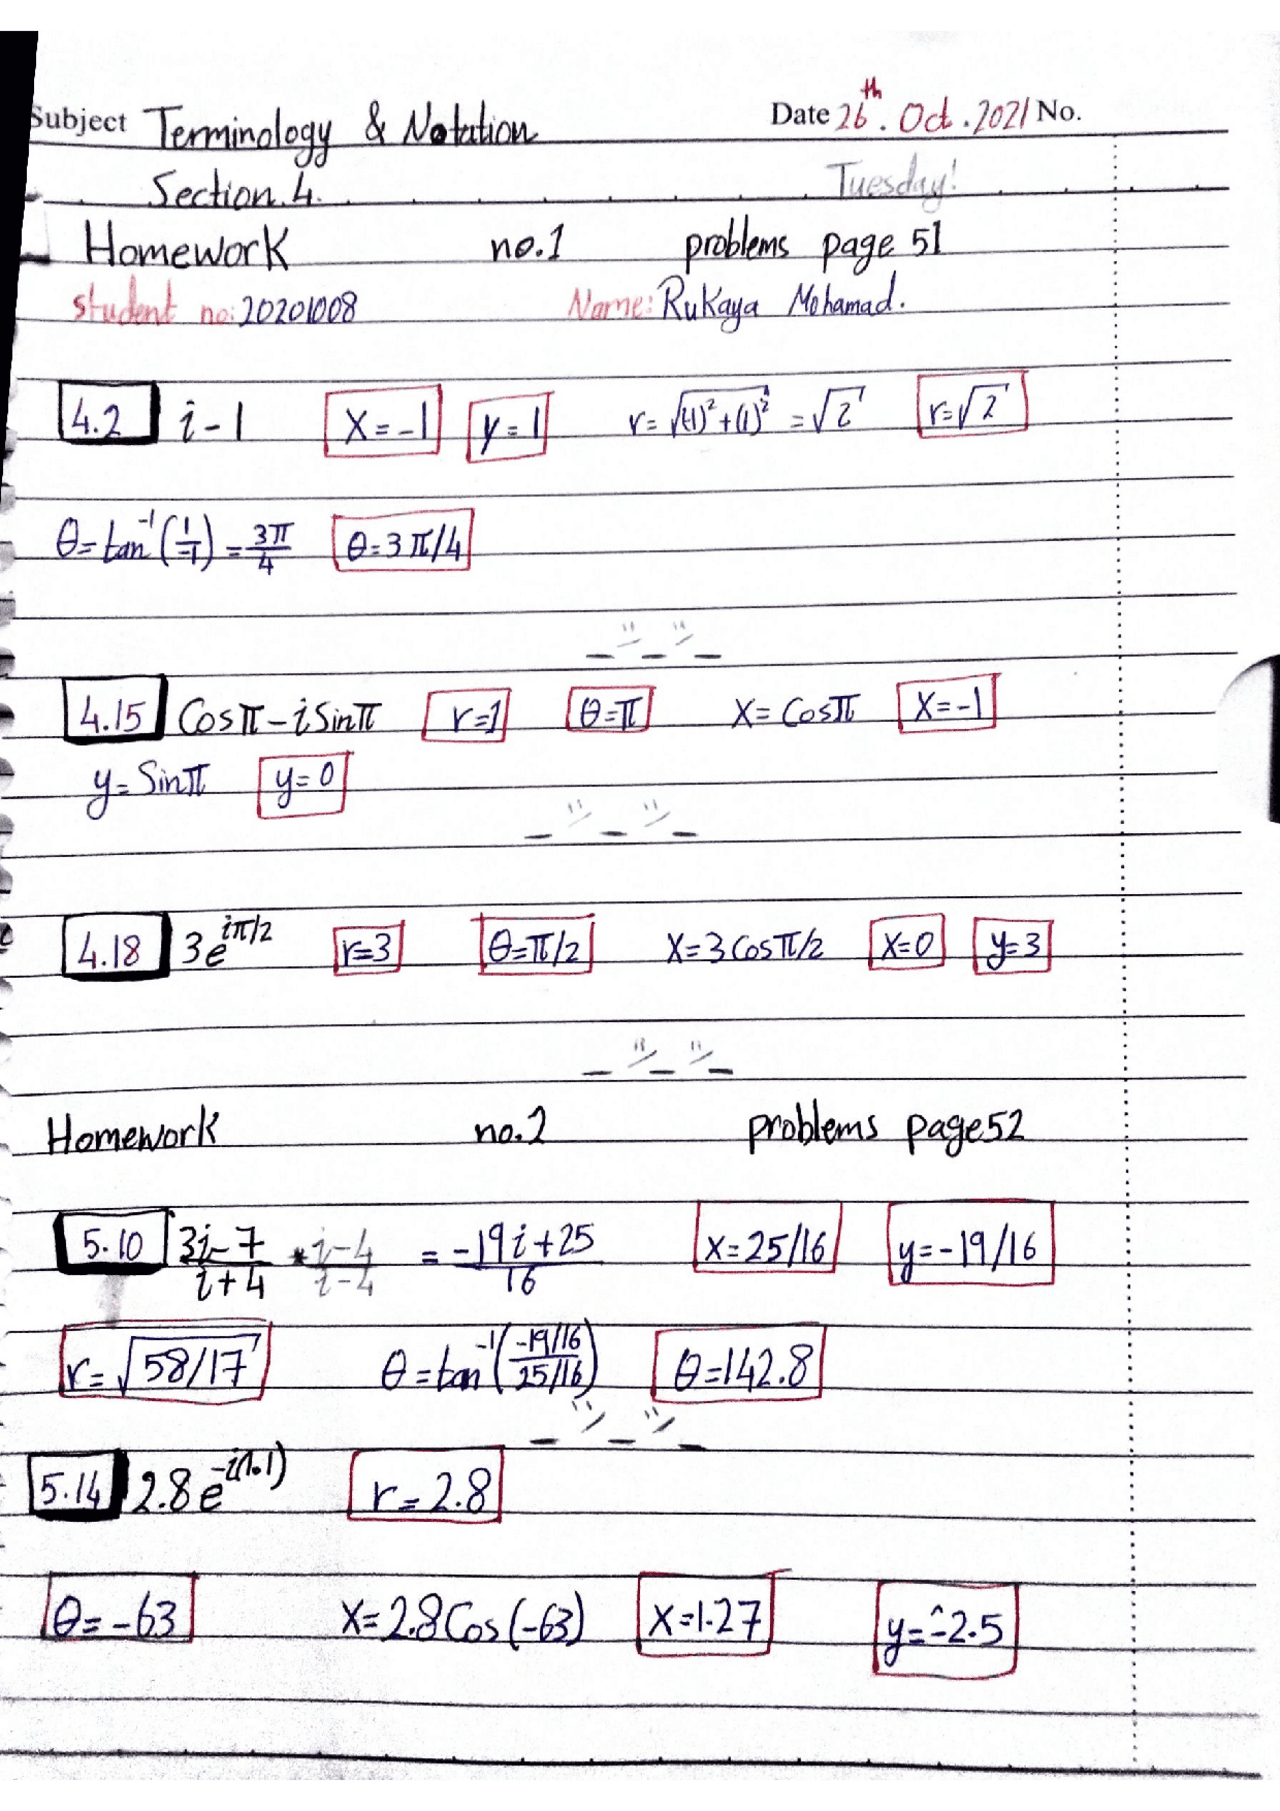 Subject Terminology & Notation Date 26th. Oct. 2021 No.
Section.4. Tuesday!
Homework no.1 problems page 51
student no: 20201008 Name: Rukaya Mohamad.
4.2 i-1 x=-1 y=1 r=√(-1)²+(1)² =√2 r=√2
θ=tan⁻¹(1/-1)=3π/4 θ=3π/4
4.15 Cosπ-iSinπ r=1 θ=π x=Cosπ x=-1
y=Sinπ y=0
4.18 3e^iπ/2 r=3 θ=π/2 x=3Cosπ/2 x=0 y=3
Homework no.2 problems page52
5.10 3i-7/i+4 * i-4/i-4 = -19i+25/16 x=25/16 y=-19/16
r=√58/17 θ=tan⁻¹(-19/16/25/16) θ=142.8
5.14 2.8e^-i(1.1) r=2.8
θ=-63 x=2.8Cos(-63) x=1.27 y=-2.5